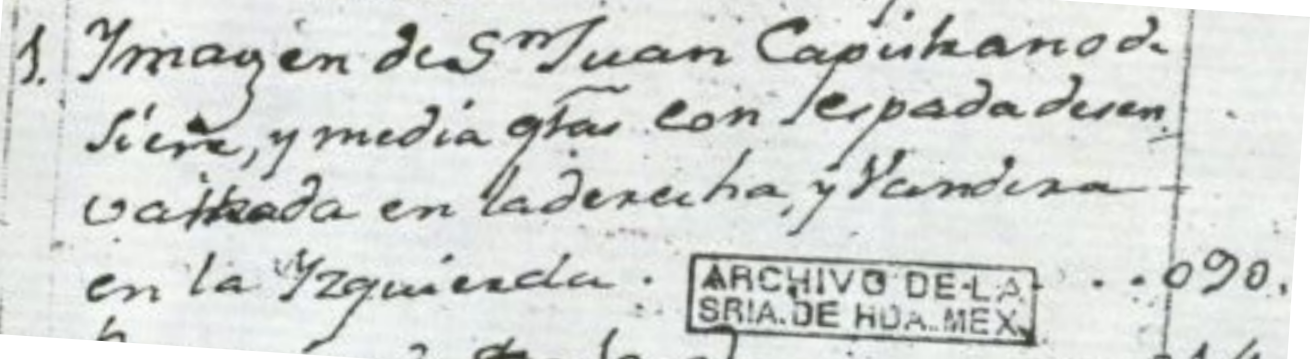 1. Ymagen de Sn Juan Capistrano de
siete, y media qtas con espada desen
vainada en la derecha, y Vandera
en la Yzquierda. . . 090.
ARCHIVO DE LA
SRIA. DE HDA. MEX.